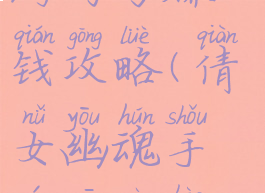 qián gōng lüè qiàn
钱攻略(倩
nǚ yōu hún shǒu
女幽魂手